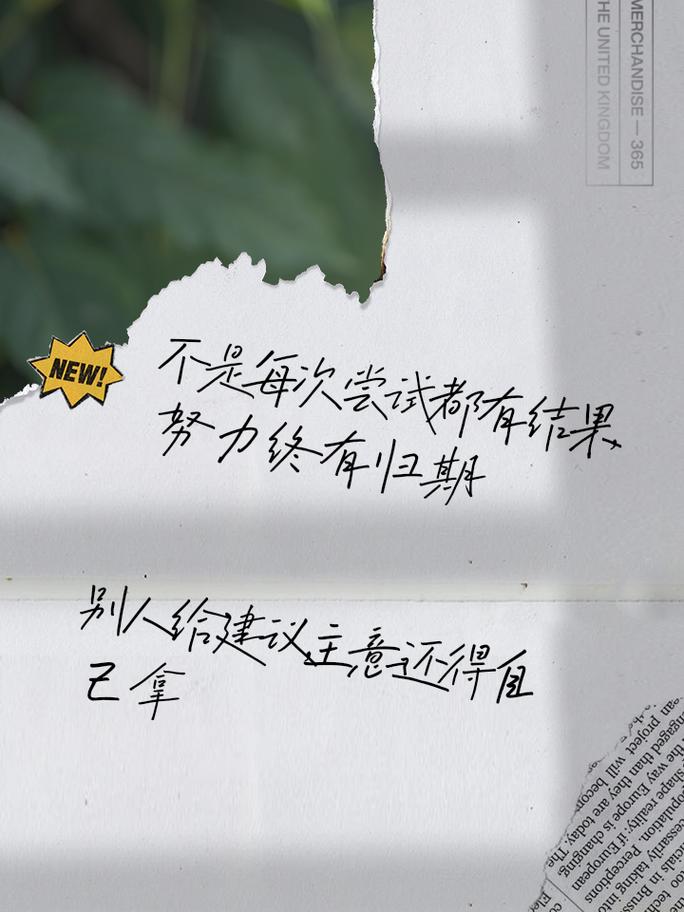 MERCHANDISE — 365
THE UNITED KINGDOM
NEW!
不是每次尝试都有结果
努力终有归期
别人给建议主意还得自
己拿
engaged than they are today. The
project will becom
the way Europe is changing
shape reality: if European
population. Perceptions
necessarily taking into